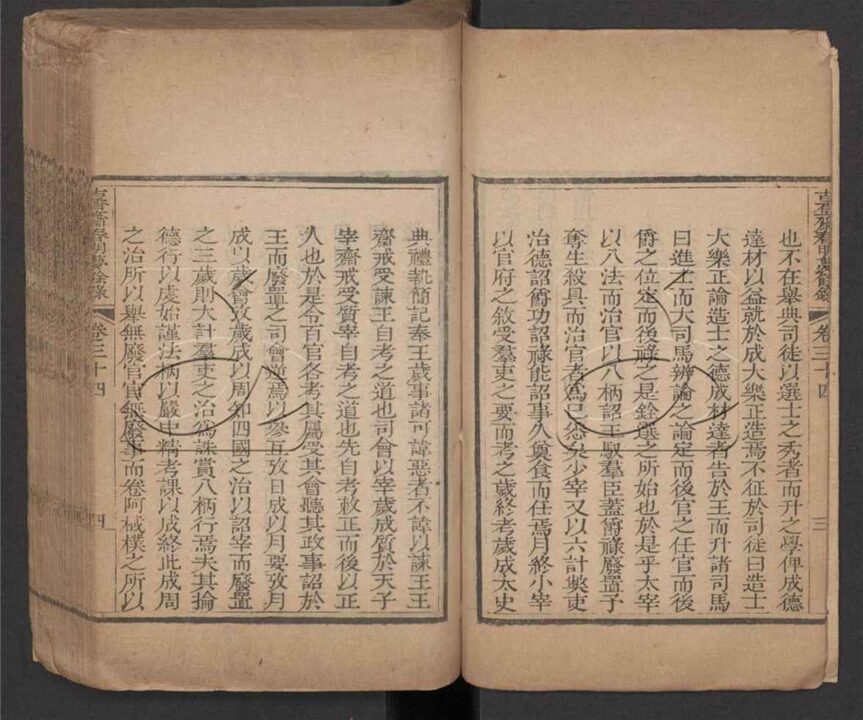 古香齋春明夢餘錄 卷三十四 三
也不在舉典司徒以選士之秀者而升之學俾成德
達材以益就於成大樂正造焉不征於司徒曰造士
大樂正論造士之德成材達者告於王而升諸司馬
曰進士而大司馬辨論之論定而後官之任官而後
爵之位定而後祿之是銓選之所始也於是乎太宰
以八法而治官以八柄詔王馭羣臣蓋爵祿廢置予
奪生殺具而治官者爲已悉矣少宰又以六計獘吏
治德詔爵功詔祿能詔事久奠食而任焉月終小宰
以官府之敘受羣吏之要而考之歲終考歲成太史
典禮執簡記奉王歲事諸可諱惡者不諱以諫王王
齋戒受諫王自考之道也司會以宰歲成質於天子
宰齋戒受質宰自考之道也先自考敕正而後以正
人也於是令百官各考其屬受其會聽其政事詔於
王而廢置之司會逆焉以參互攷日成以月要攷月
成以歲會攷歲成以周知四國之治以詔宰而廢置
之三歲則大計羣吏之治爲誅賞八柄行焉夫其掄
德行以虔始謹法柄以嚴中精考課以成終此成周
之治所以舉無廢官官無廢事而卷阿棫樸之所以
古香齋春明夢餘錄 卷三十四 四